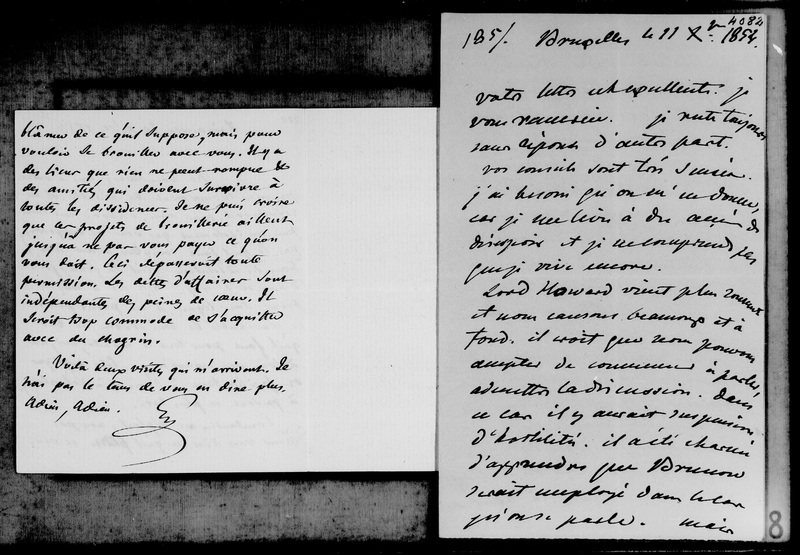 blâmer de ce qu'il suppose, mais pour
vouloir se brouiller avec vous. Il y a
des liens que rien ne peut rompre &
des amitiés qui doivent survivre à
toutes les dissidences. Je ne puis croire
que ces projets de brouillerie aillent
jusqu'à ne pas vous payer ce qu'on
vous doit. Ceci dépasserait toute
permission. Les dettes d'affaires sont
indépendantes des peines de cœur. Il
serait trop commode de s'acquitter
avec du chagrin.
Voilà deux visites qui m'arrivent. Je
n'ai pas le tems de vous en dire plus.
Adieu, Adieu.
4082
185/. Bruxelles le 11 Xbre 1854.
votre lettre est excellente. je
vous remercie. je reste toujours
sans réponse d'autre part.
vos conseils sont très
j'ai besoin qu'on m'en donne,
car je me livre à des accès de
désespoir et je ne comprends pas
que je vive encore.
Lord Howard vient plus souvent
et nous causons beaucoup et à
fond. il croit que nous pouvons
accepter de commencer à parler,
admettre la discussion. Dans
ce cas il y aurait suspension
d'hostilités. il a été charmé
d'apprendre que Brunow
serait employé dans le cas
qu'on se parle. mais
8